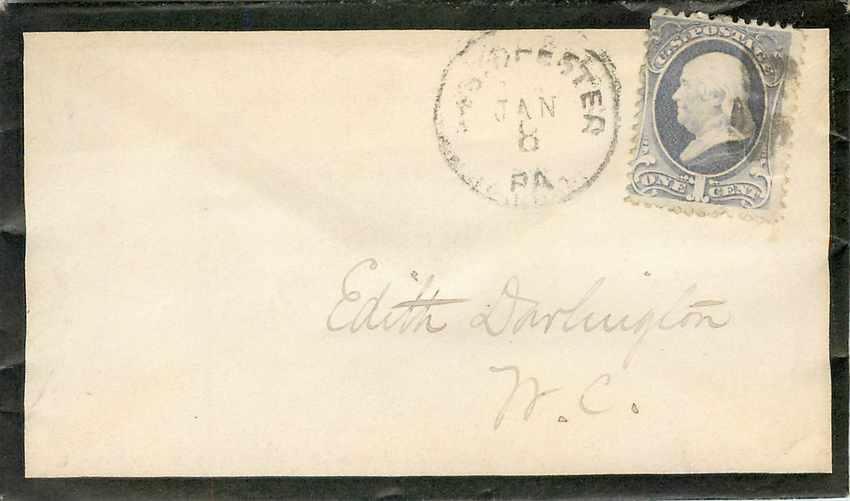 CHESTER
JAN
8
PA
U.S. POSTAGE
ONE 1 CENT
Edith Darlington
W. C.